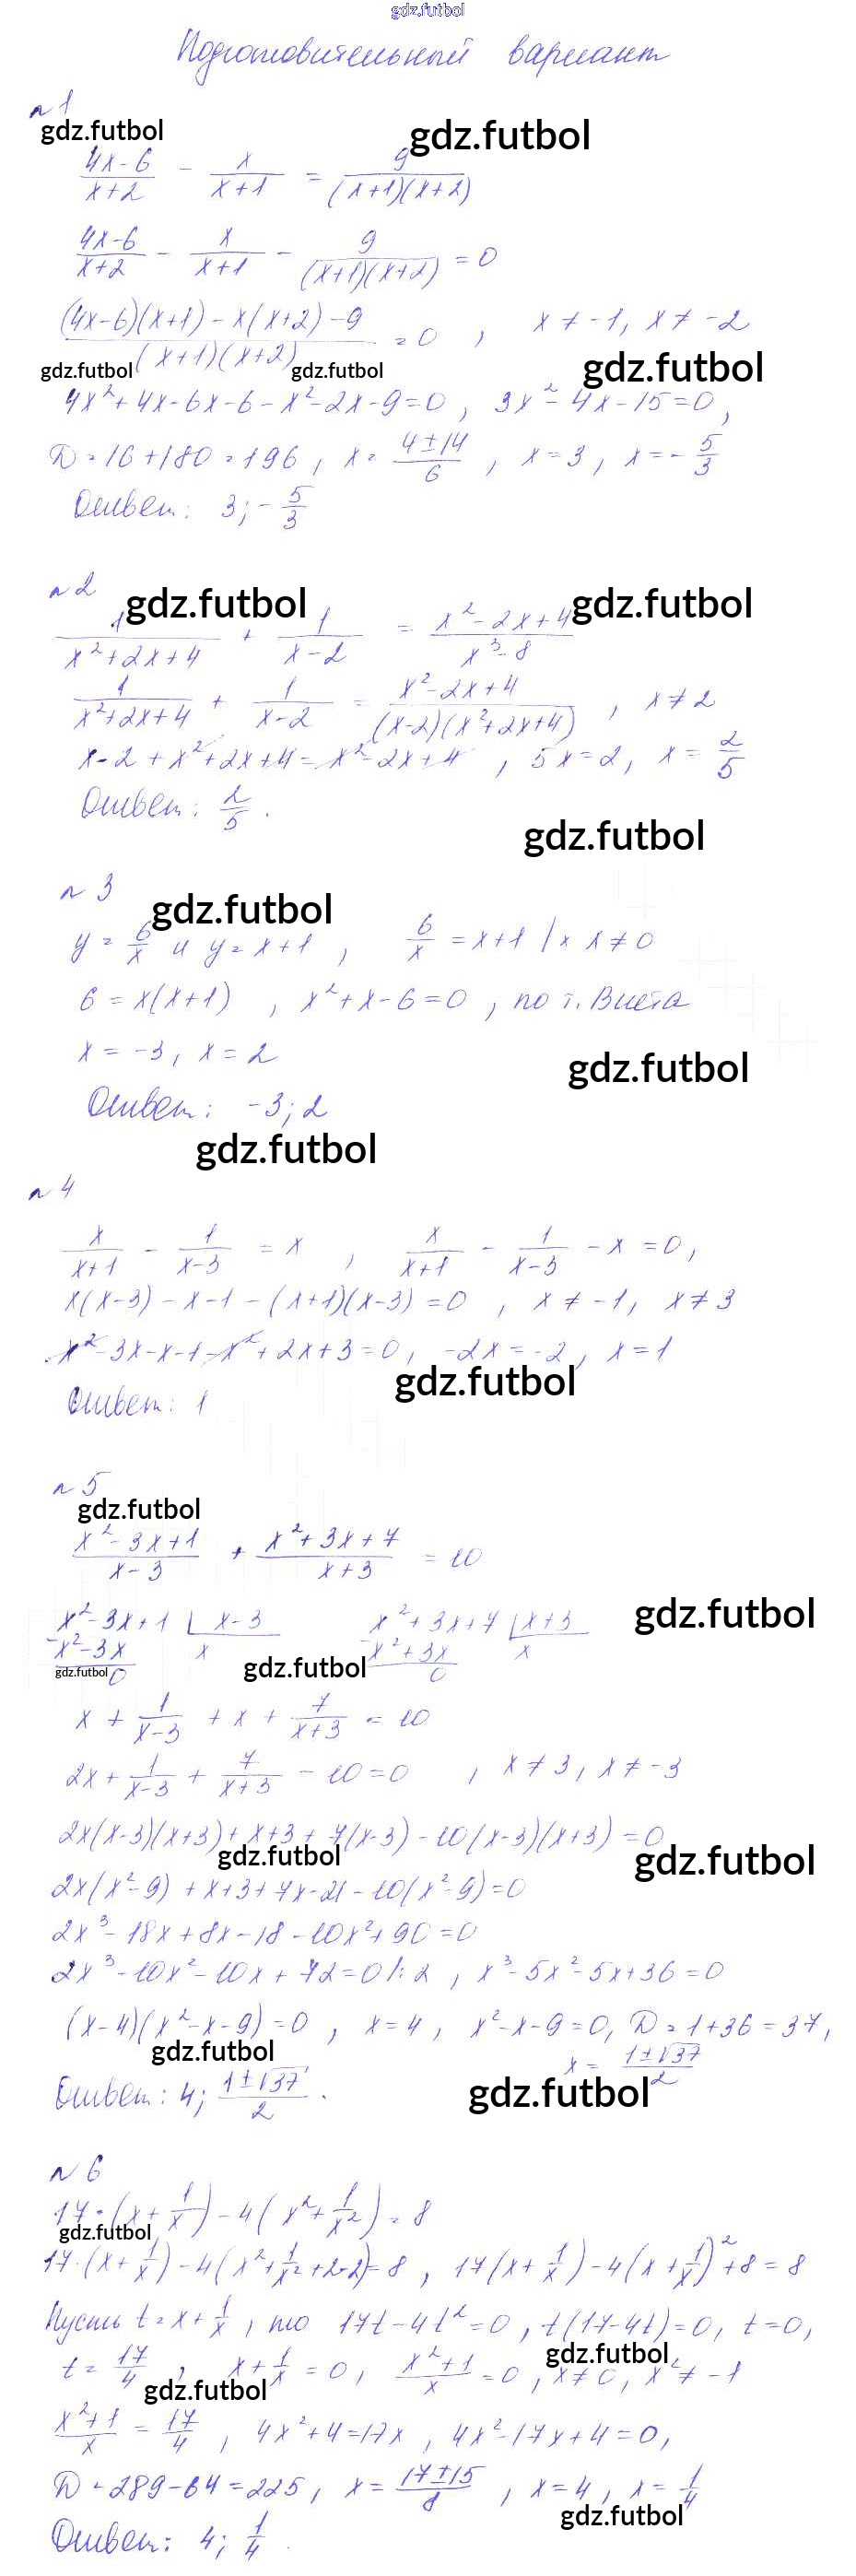 gdz.futbol
Подготовительный вариант
n 1
gdz.futbol gdz.futbol
(4x-6)/(x+2) - x/(x+1) = 9/((x+1)(x+2))
(4x-6)/(x+2) - x/(x+1) - 9/((x+1)(x+2)) = 0
((4x-6)(x+1) - x(x+2) - 9)/((x+1)(x+2)) = 0 , x ≠ -1, x ≠ -2
gdz.futbol gdz.futbol gdz.futbol
4x² + 4x - 6x - 6 - x² - 2x - 9 = 0 , 3x² - 4x - 15 = 0 ,
D = 16 + 180 = 196 , x = (4 ± 14)/6 , x = 3 , x = - 5/3
Ответ: 3; - 5/3
n 2
gdz.futbol gdz.futbol
1/(x²+2x+4) + 1/(x-2) = (x²-2x+4)/(x³-8)
1/(x²+2x+4) + 1/(x-2) = (x²-2x+4)/((x-2)(x²+2x+4)) , x ≠ 2
x - 2 + x² + 2x + 4 = x² - 2x + 4 , 5x = 2 , x = 2/5
Ответ: 2/5 .
gdz.futbol
n 3
gdz.futbol
y = 6/x и y = x + 1 , 6/x = x + 1 | × x ≠ 0
6 = x(x+1) , x² + x - 6 = 0 , по т. Виета
x = -3 , x = 2
gdz.futbol
Ответ: -3; 2
gdz.futbol
n 4
x/(x+1) - 1/(x-3) = x , x/(x+1) - 1/(x-3) - x = 0 ,
x(x-3) - x - 1 - (x+1)(x-3) = 0 , x ≠ -1 , x ≠ 3
x² - 3x - x - 1 - x² + 2x + 3 = 0 , -2x = -2 , x = 1
gdz.futbol
Ответ: 1
n 5
gdz.futbol
(x²-3x+1)/(x-3) + (x²+3x+7)/(x+3) = 10
x² - 3x + 1 | x - 3 x² + 3x + 7 | x + 3
gdz.futbol
- x² - 3x x - x² + 3x x
gdz.futbol 0 gdz.futbol 0
x + 1/(x-3) + x + 7/(x+3) = 10
2x + 1/(x-3) + 7/(x+3) - 10 = 0 , x ≠ 3 , x ≠ -3
2x(x-3)(x+3) + x + 3 + 7(x-3) - 10(x-3)(x+3) = 0
gdz.futbol gdz.futbol
2x(x²-9) + x + 3 + 7x - 21 - 10(x²-9) = 0
2x³ - 18x + 8x - 18 - 10x² + 90 = 0
2x³ - 10x² - 10x + 72 = 0 |: 2 , x³ - 5x² - 5x + 36 = 0
(x-4)(x²-x-9) = 0 , x = 4 , x² - x - 9 = 0 , D = 1 + 36 = 37 ,
gdz.futbol
x = (1 ± √37)/2
gdz.futbol
Ответ: 4; (1 ± √37)/2 .
n 6
17·(x + 1/x) - 4(x² + 1/x²) = 8
gdz.futbol
17·(x + 1/x) - 4(x² + 1/x² + 2 - 2) = 8 , 17(x + 1/x) - 4(x + 1/x)² + 8 = 8
Пусть t = x + 1/x , то 17t - 4t² = 0 , t(17-4t) = 0 , t = 0 ,
gdz.futbol
t = 17/4 , x + 1/x = 0 , (x²+1)/x = 0 , x ≠ 0 , x² ≠ -1
gdz.futbol
(x²+1)/x = 17/4 , 4x² + 4 = 17x , 4x² - 17x + 4 = 0 ,
D = 289 - 64 = 225 , x = (17 ± 15)/8 , x = 4 , x = 1/4
gdz.futbol
Ответ: 4; 1/4 .